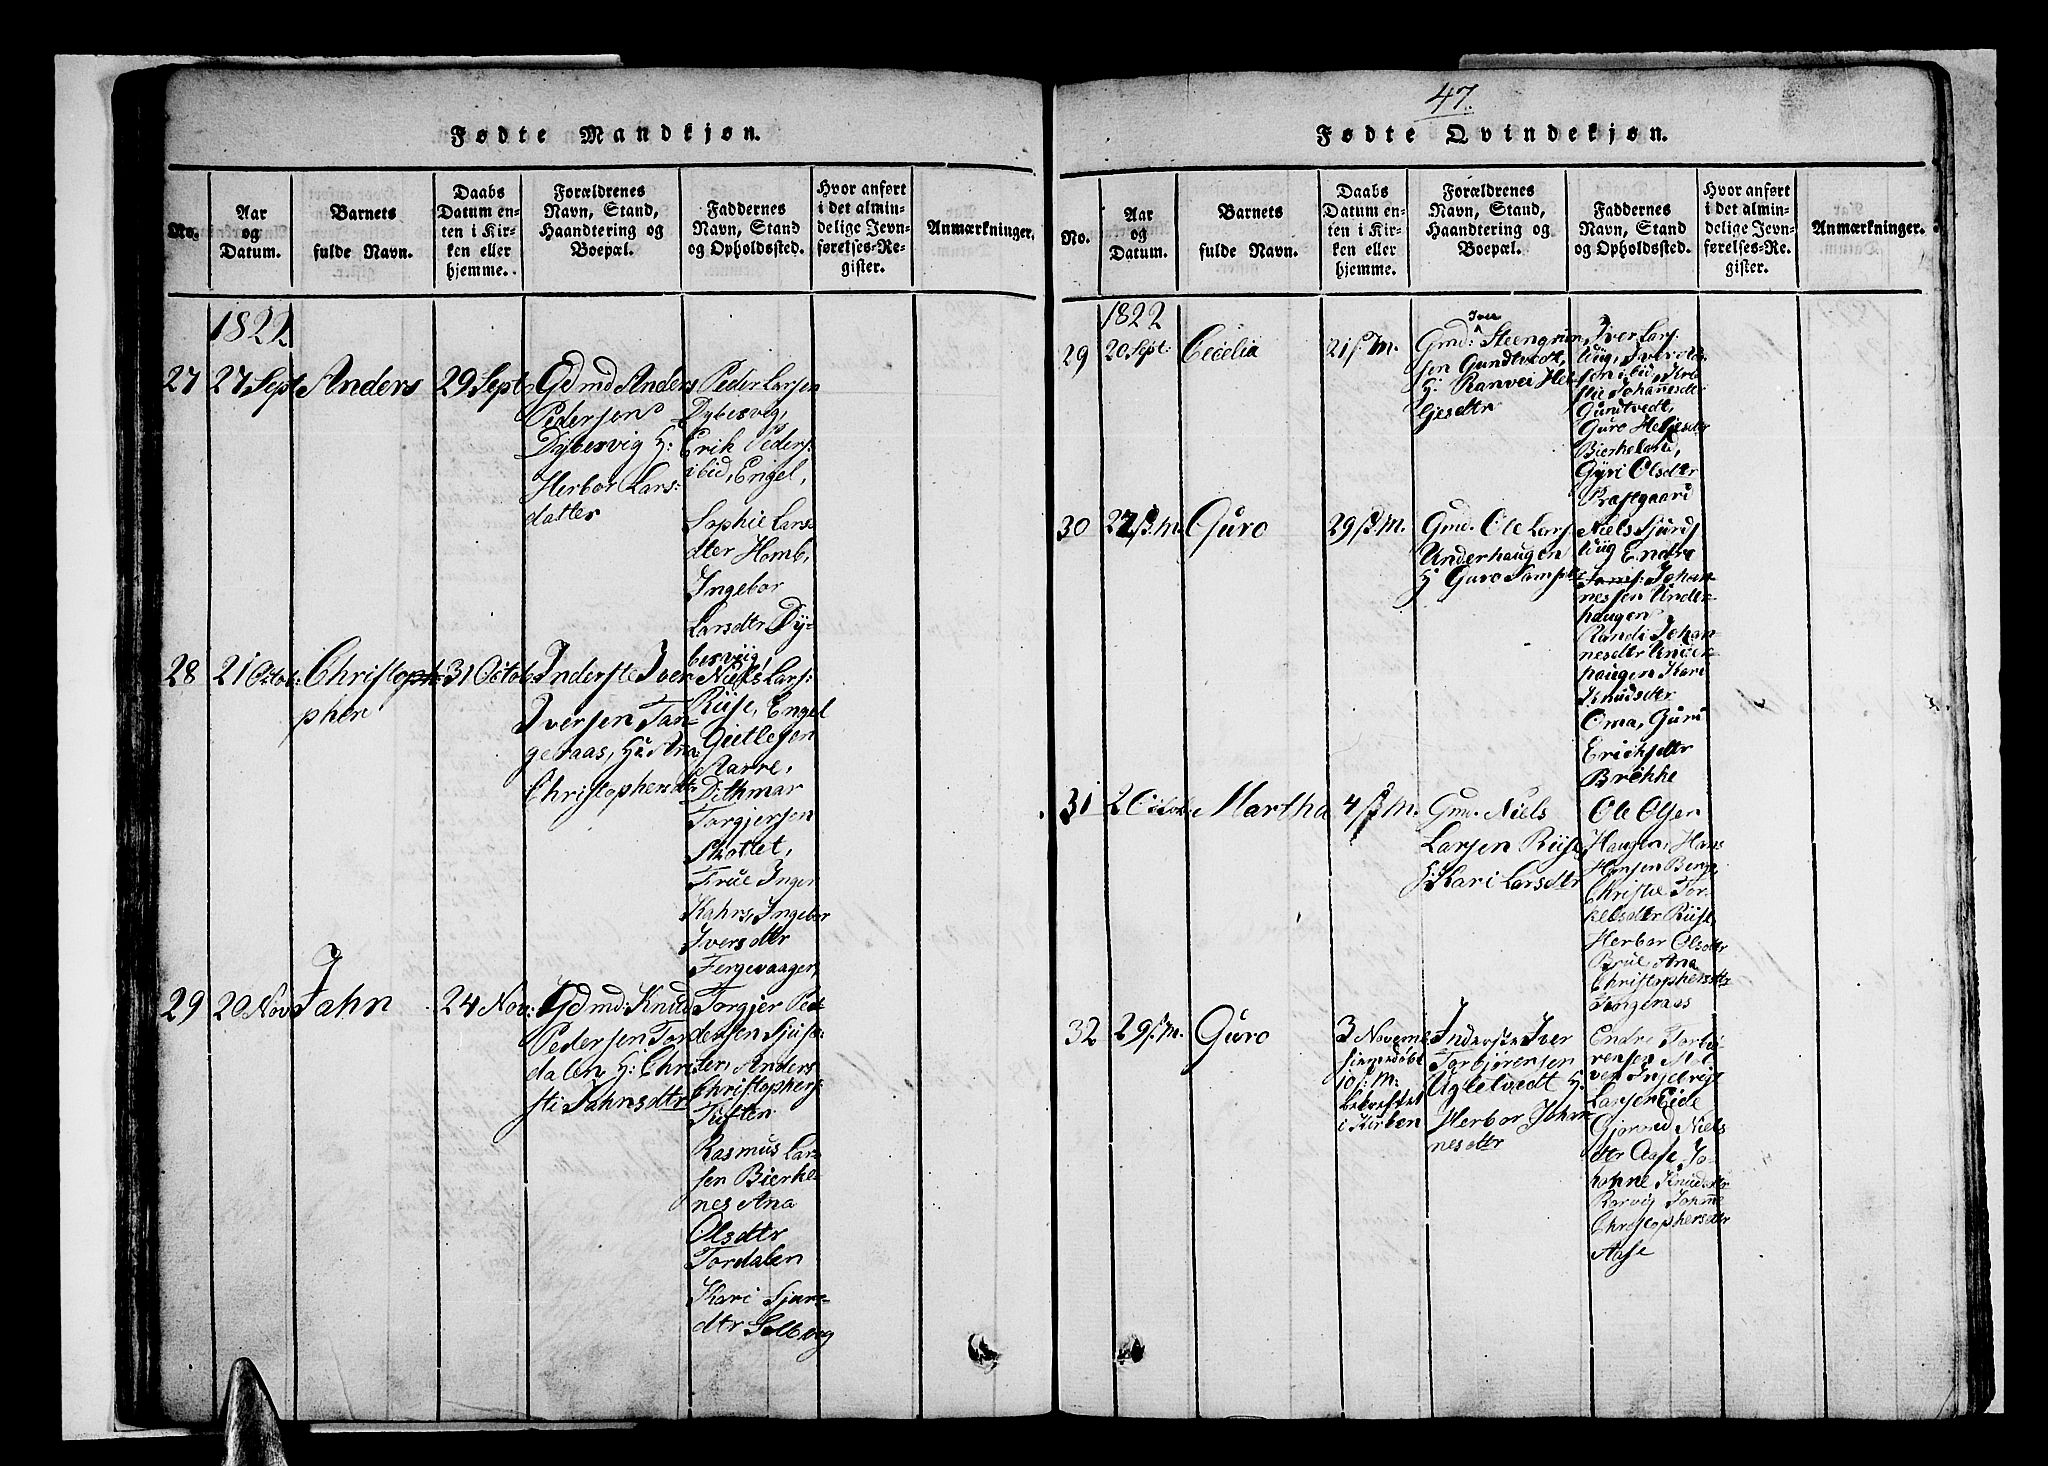 Fødte Mandkjøn.
No.
Aar
og
Datum.
Barnets
fulde Navn.
Daabs
Datum en-
ten i Kir-
ken eller
hjemme.
Forældrenes
Navn, Stand,
Haandtering og
Boepæl.
Faddernes
Navn, Stand
og Opholdssted.
Hvor anført
i det almin-
delige Jevn-
førelses-Re-
gister.
Anmærkninger.
1822
27
27 Sept
Anders
29 Sept
Gdmd Anders
Pedersen
Dybesvig H:
Herbor Lars:
datter
Peder Larsen
Dybesvig,
Erik Peders:
ibid, Engel,
Sophie Lars
dter Homb,
Ingebor
Larsdtr Dy-
besviig,
28
21 Octob:
Christoph
pher
31 Octob:
Inderste Iver
Iversen Tan-
geraas, H: Ana
Christophersdtr
Niels Lars:
Riise, Engel
Gietlesen
Marre,
Dithmar
Torgjersen
Skottet,
Frue Inger
Kahrs, Ingebor
Iversdtr
Fergevaagen,
29
20 Nov
Jahn
24 Nov:
Gdmd: Knud
Pedersen Tor
dalen H: Chri
sti Jahnsdtr
Torgjer Pe
dersen
Anders
Christophers
Tuften
Rasmus Lar
sen Bierke
nes Ana
Olsdtr
Tordalen
Kari Sjurs
dtr Solbveg
47.
Fødte Qvindekjøn.
No.
Aar
og
Datum.
Barnets
fulde Navn.
Daabs
Datum en-
ten i Kir-
ken eller
hjemme.
Forældrenes
Navn, Stand,
Haandtering og
Boepæl.
Faddernes
Navn, Stand
og Opholdssted.
Hvor anført
i det almin-
delige Jevn-
førelses-Re-
gister.
Anmærkninger.
1822
29
20 Sept:
Cecelia
21 s. M.
Iver
Gmd: Steengrim
sen Gundtvedt,
H: Ranvei Hel
gesdtr
Iver Lars:
ibid,
Johannesdtr
Gundtvedt,
Guro Helgesdtr
Bierkeland,
Gyri Olsdtr
Præstgaard
30
27 s. M.
Guro
29 s. M.
Gmd. Ole Lars
Underhaugen
H: Guro Samps
Niels Sjurs
Endre
Johan
nessen Under
haugen
Randi Johan
nesdtr Under
haugen Kari
Knudsdtr
Oma, Guri
Erichsdtr
Brekke
31
2 Octob:
Martha
4 s. M.
Gmd. Niels
Larsen Riise
H: Kari Larsdtr
Ole Olsen
Haugen, Hans
Hansen Berge
Christie Tor
kelsdtr Riise,
Herbor Olsdtr
Brue, Ana
Christophersdtr
Tangeraas
32
29 s. M.
Guro
3 Novemb
hiemmedøbt
10 s: M:
bekreftet
i Kirken
Inderste Iver
Torbjørensen
Uglelvedt H.
Herbor Johan
nesdtr
Endre Torbiø
rensen
Larsen Eide
Niels
dtr Aase, Jo
hanne Knudsdtr
Johanne
Christophersdtr
Aase